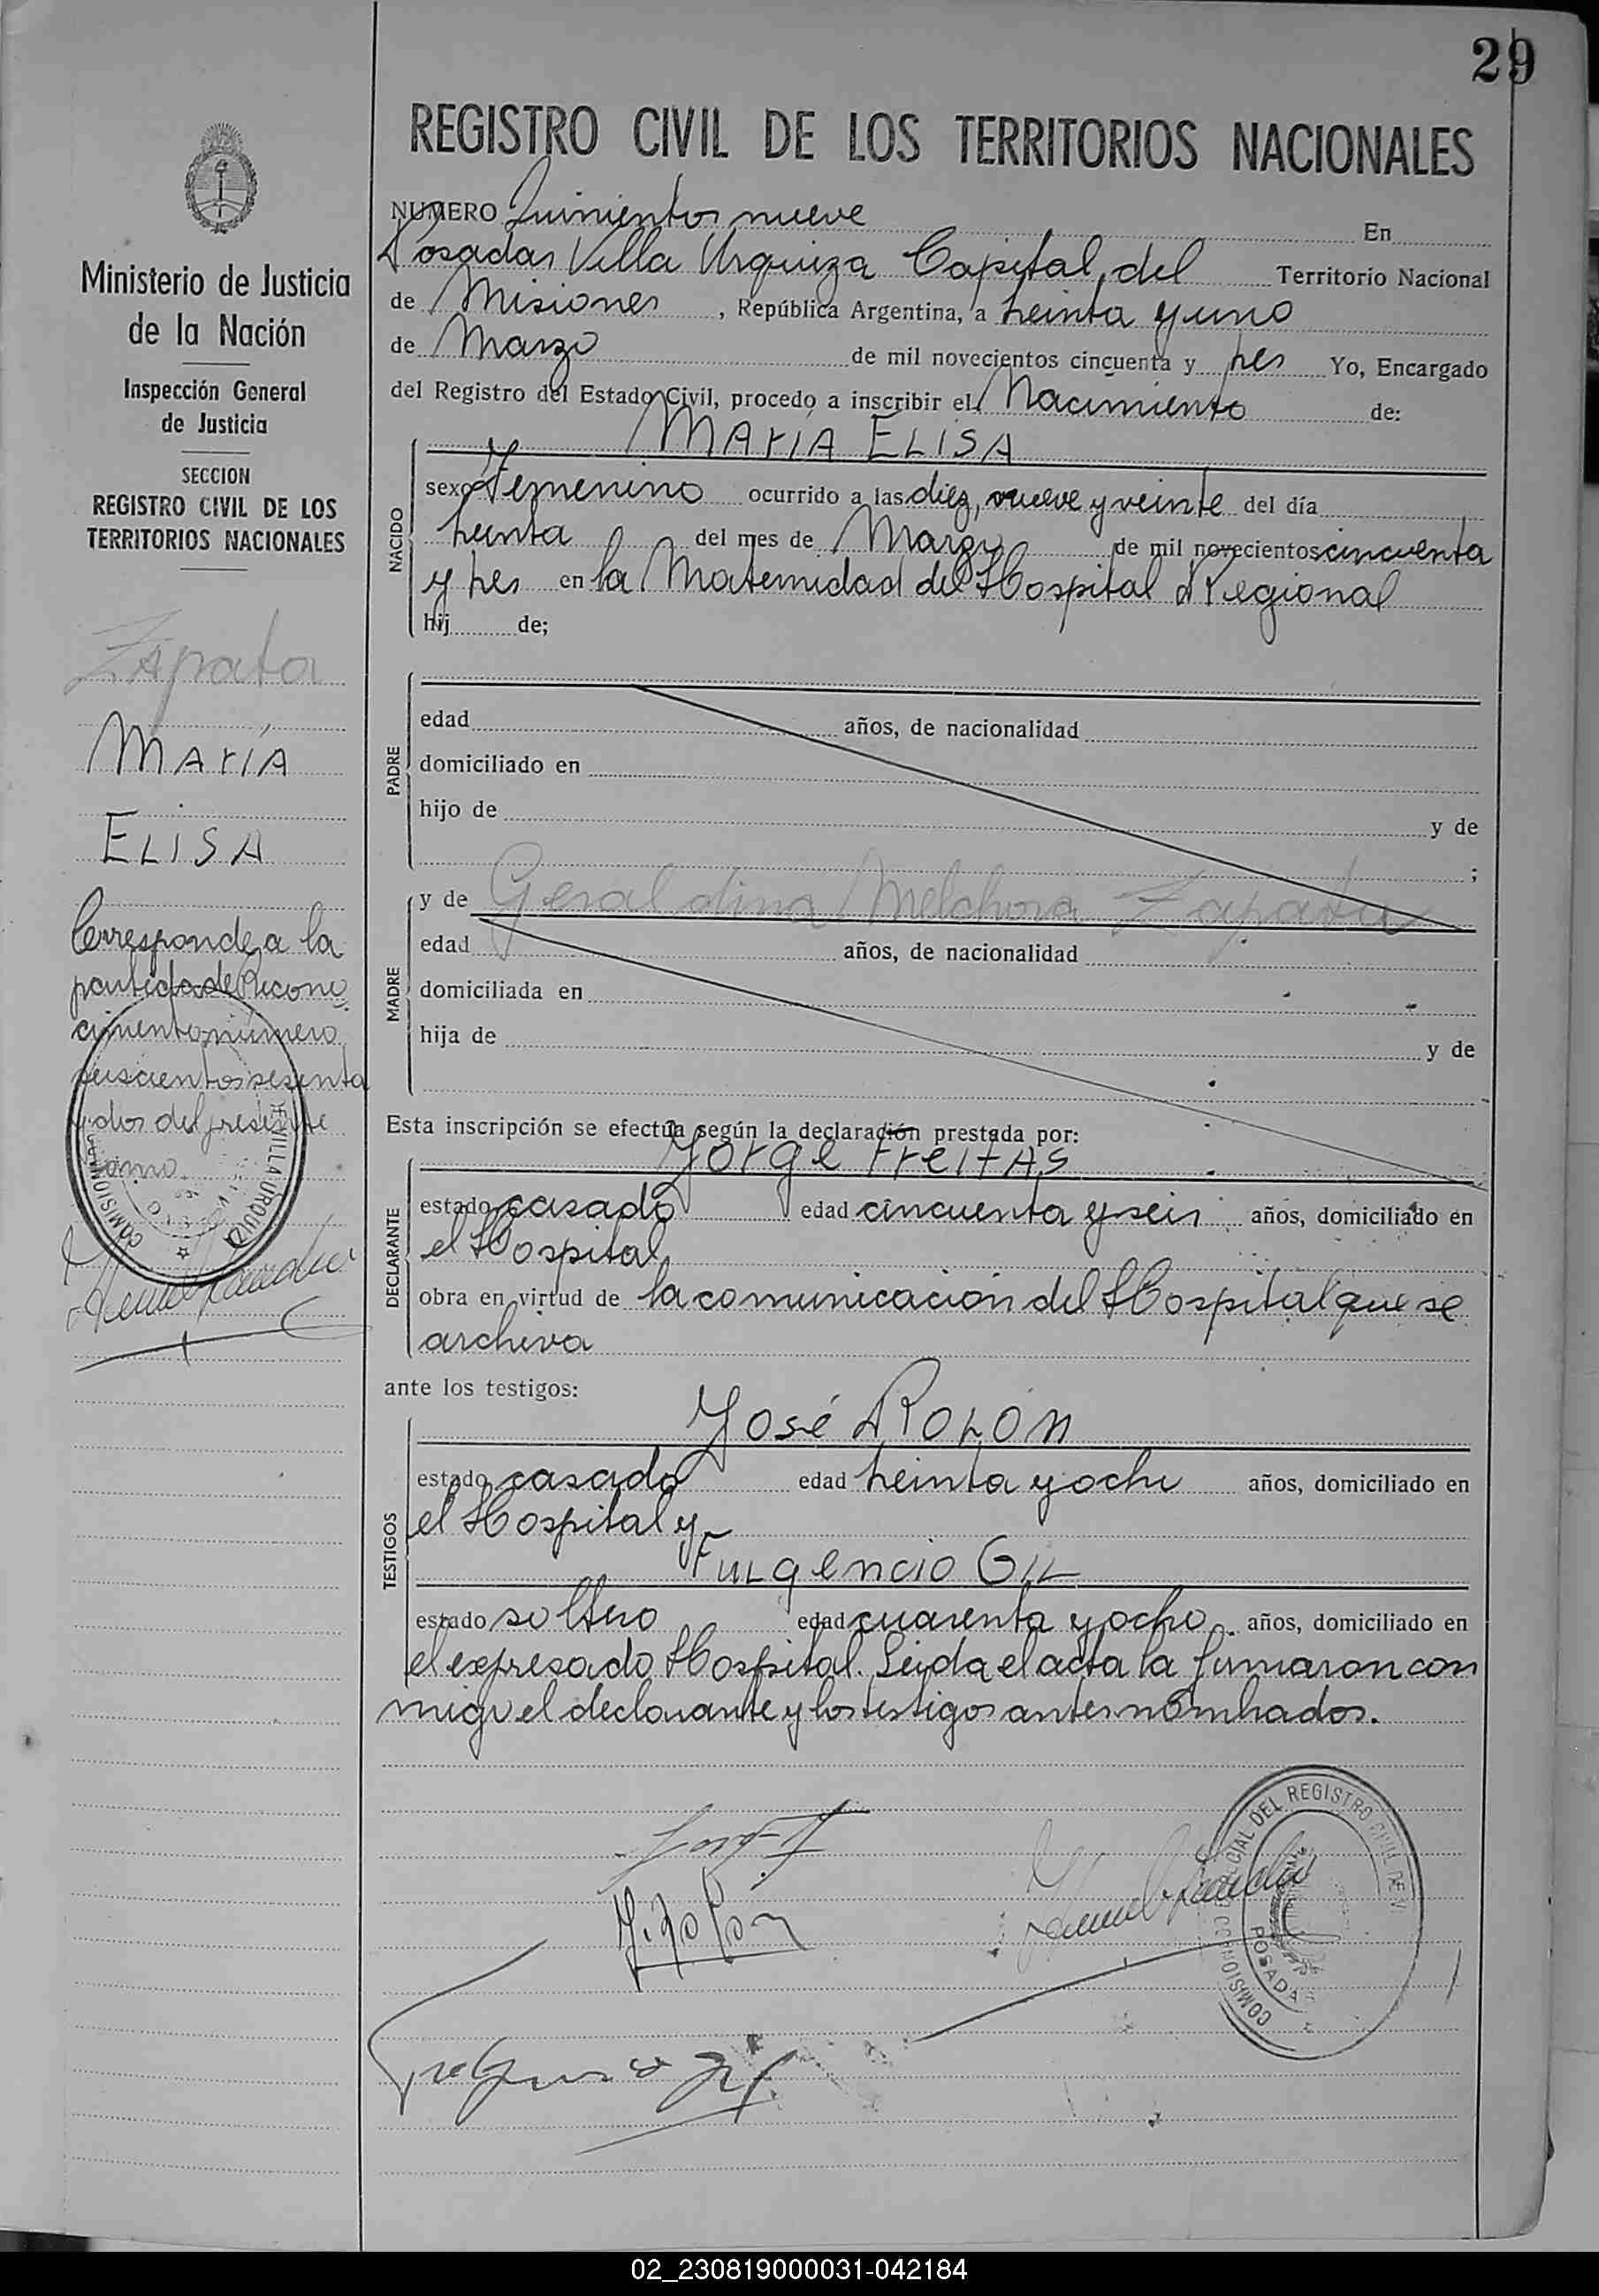 29
REGISTRO CIVIL DE LOS TERRITORIOS NACIONALES
NUMERO Quinientos nueve En
Posadas Villa Urquiza Capital del Territorio Nacional
de Misiones, República Argentina, a treinta y uno
de Marzo de mil novecientos cincuenta y tres Yo, Encargado
del Registro del Estado Civil, procedo a inscribir el Nacimiento de:
MARIA ELISA
NACIDO
sexo Femenino ocurrido a las diez, nueve y veinte del día
treinta del mes de Marzo de mil novecientos cincuenta
y tres en la Maternidad del Hospital Regional
hij de;
PADRE
edad años, de nacionalidad
domiciliado en
hijo de y de
;
MADRE
y de Geraldina Melchora Zapata
edad años, de nacionalidad
domiciliada en
hija de y de
Esta inscripción se efectúa según la declaración prestada por:
Jorge Freitas
DECLARANTE
estado casado edad cincuenta y seis años, domiciliado en
el Hospital
obra en virtud de la comunicación del Hospital que se
archiva
ante los testigos:
José Rolón
TESTIGOS
estado casado edad treinta y ocho años, domiciliado en
el Hospital y
Fulgencio Gil
estado soltero edad cuarenta y ocho años, domiciliado en
el expresado Hospital. Leida el acta la firmaron con
migo el declarante y los testigos antes nombrados.
Ministerio de Justicia
de la Nación
Inspección General
de Justicia
SECCION
REGISTRO CIVIL DE LOS
TERRITORIOS NACIONALES
Zapata
María
ELISA
Corresponde a la
partida de Recono
cimiento número
seiscientos sesenta
y dos del presente
tomo.
COMISION
VILLA URQUIZA
COMISION
OFICIAL DEL REGISTRO CIVIL DE V
POSADAS
02_230819000031-042184